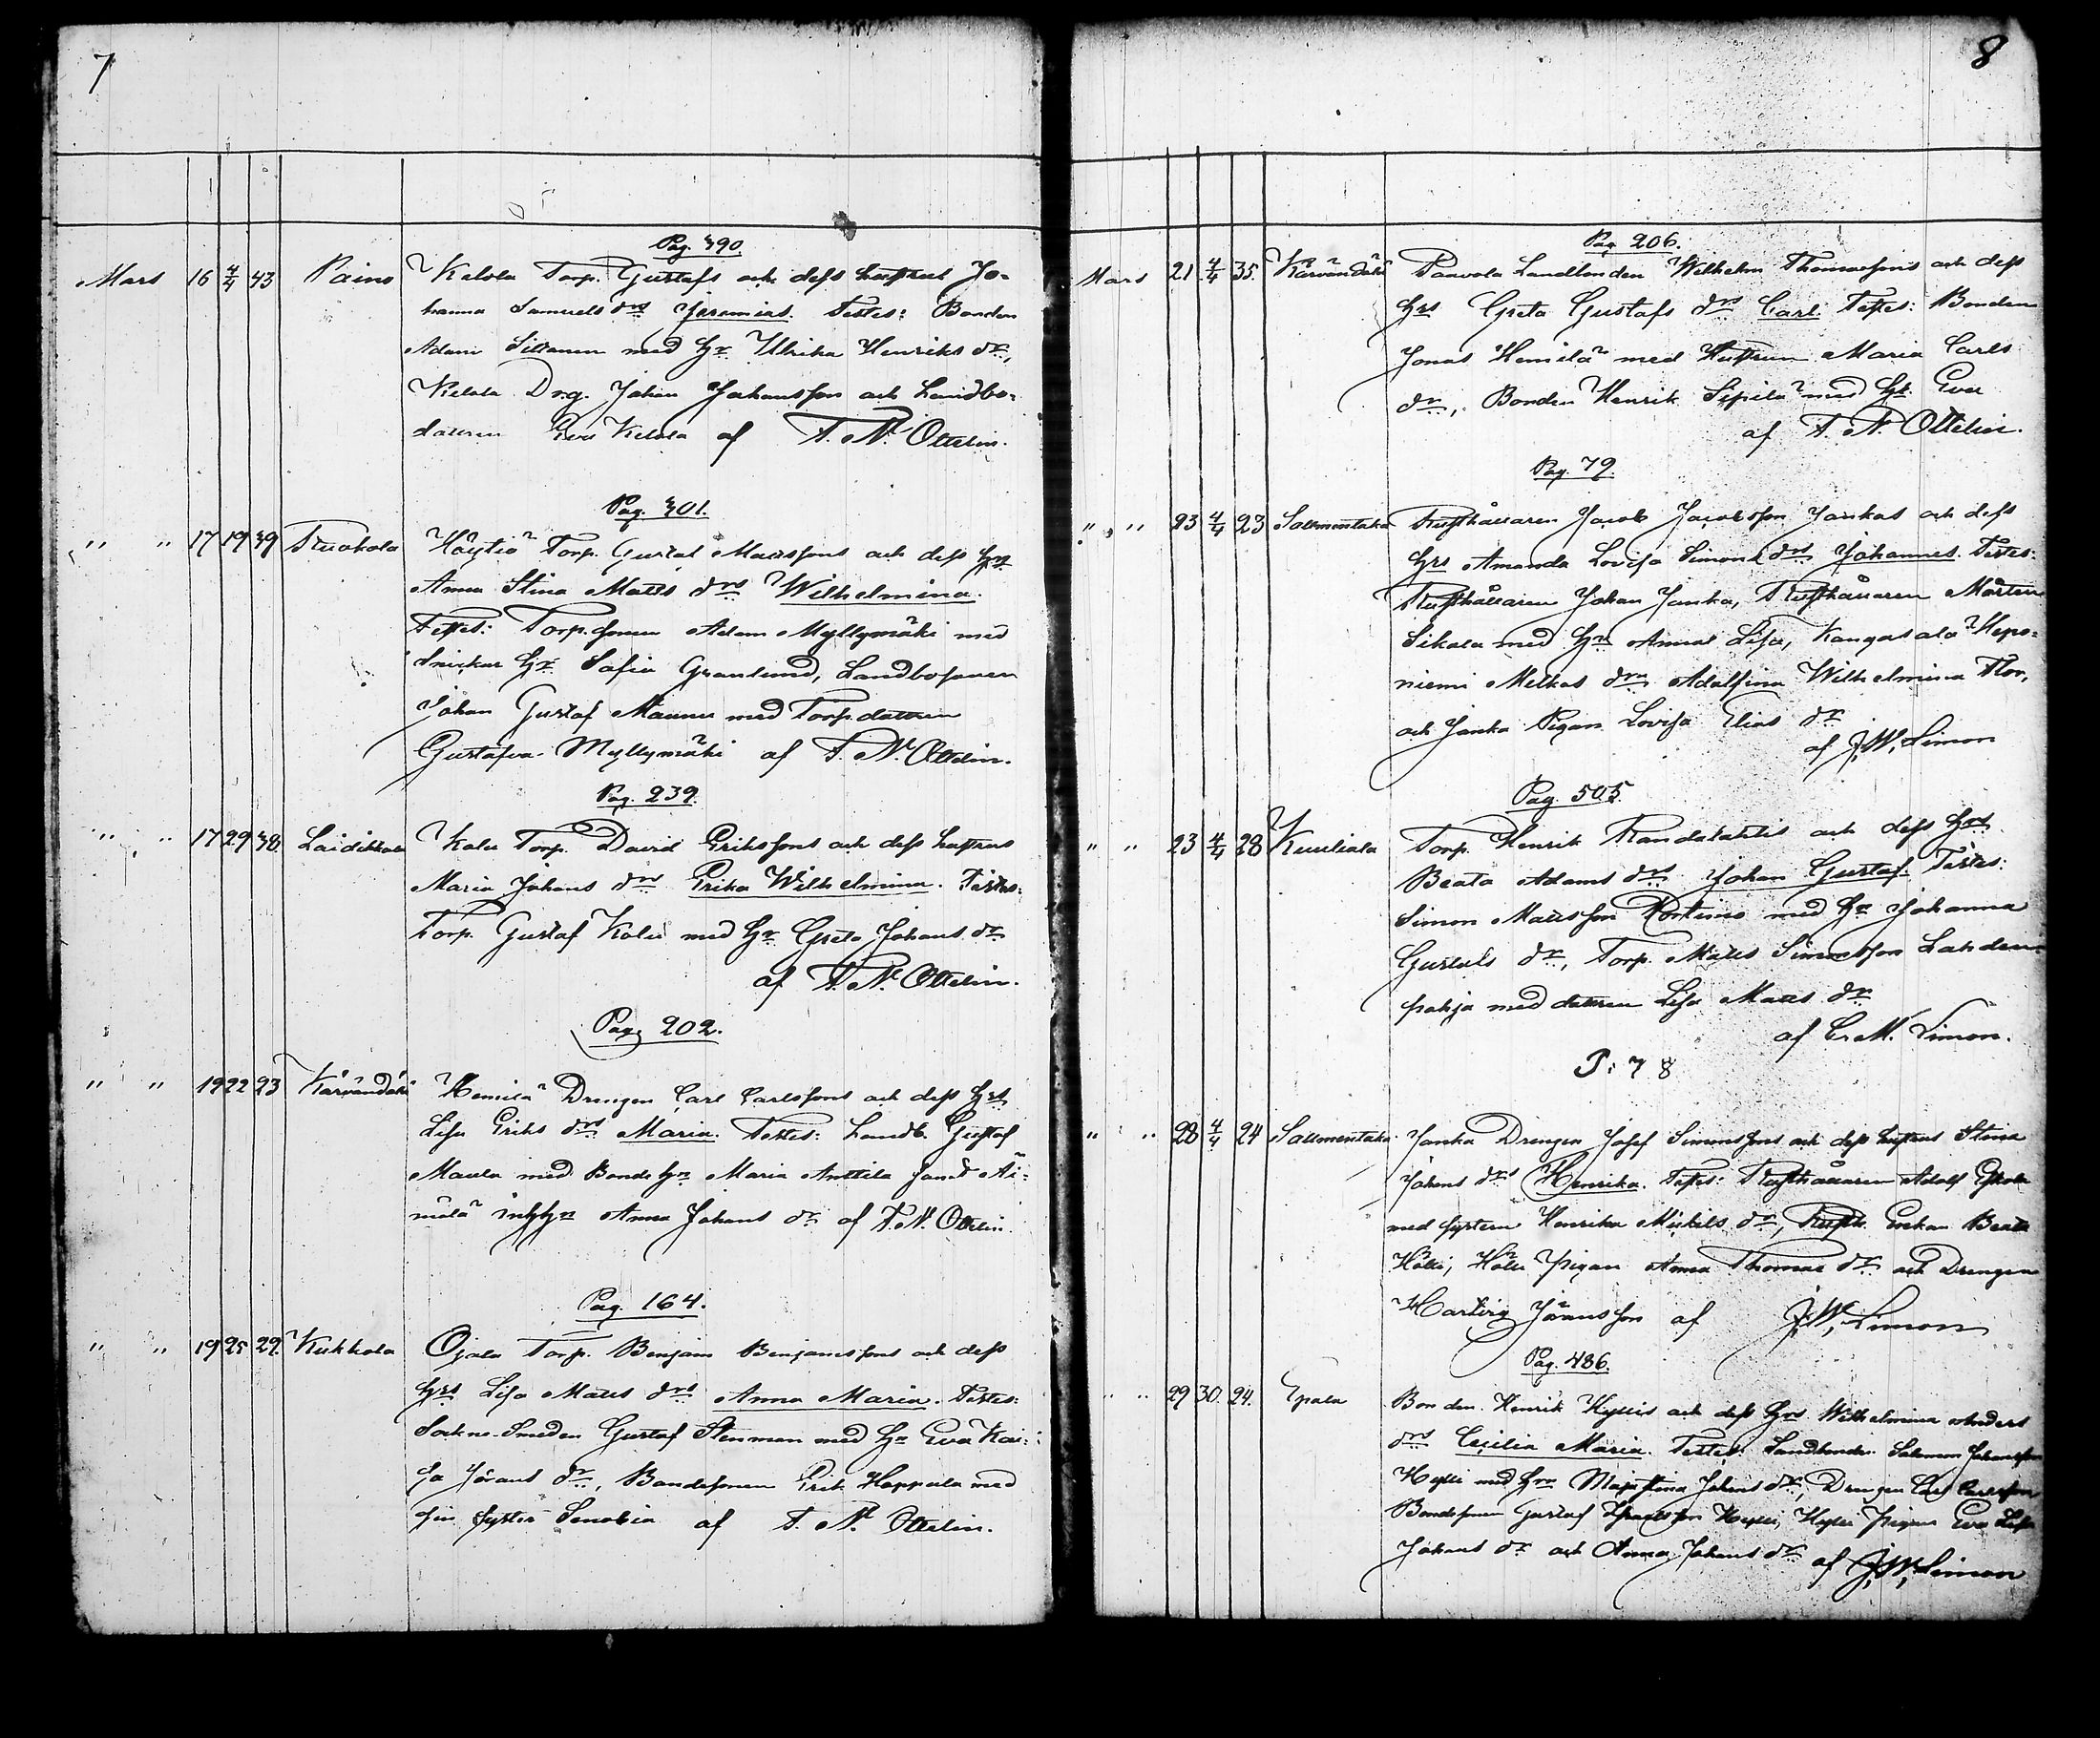 7
Pag. 390.
Mars 16 4/4 43 Paino Kelola Torp. Gustafs och dess hustrus Jo-
hanna Samuels drs Jeremias. Testes: Bonden
Adam Siltanen med Hr Ulrika Henriks dr,
Kelola Drg. Johan Johansson och Landbo-
dottren Eva Kelola af F. N. Ottelin.
Pag. 301.
" " 17 19 39 Ruokola Höytiö Torp. Gustaf Mattssons och dess hrs
Anna Stina Matts drs Wilhelmina.
Testes: Torp.sonen Adam Myllymäki med
Snickar Hr Sofia Granlund, Landbosonen
Johan Gustaf Maunu med Torp.dottren
Gustafva Myllymäki af F. N. Ottelin.
Pag. 239.
" " 17 29 38 Laidikkala Kalu Torp. David Erikssons och dess hustrus
Maria Johans drs Erika Wilhelmina. Testes:
Torp. Gustaf Kalu med Hr Greta Johans dr
af F. N. Ottelin.
Pag. 202.
" " 19 22 23 Kärvändälä Hemilä Drengen Carl Carlssons och dess hrs
Lisa Eriks drs Maria. Testes: Landb. Gustaf
Maula med Bonde hr Maria Anttila samt Äi-
mälä Anna Johans dr af F. N. Ottelin.
Pag. 164.
" " 19 25 29. Kukkola Ojala Torp. Benjam Benjamssons och dess
hrs Lisa Matts drs Anna Maria. Testes:
Sockne-Smeden Gustaf Stenman med Hr Eva Kai-
sa Jörans dr, Bondesonen Erik Hoppula med
sin syster Senobia af F. N. Ottelin.
8
Pag. 206.
Mars 21 4/4 35. Kärvändälä Paavola Landbonden Wilhelm Thomassons och dess
hrs Greta Gustafs drs Carl. Testes: Bonden
Jonas Hemilä med Hustrun Maria Carls
dr, Bonden Henrik Sepilä med Hr Eva
af F. N. Ottelin.
Pag. 79.
" " 23 4/4 23 Salmentaka Rusthållaren Jacob Jacobsson Jankas och dess
hrs Amanda Lovisa Simons drs Johannes. Testes:
Rusthållaren Johan Janka, Rusthållaren Mårten
Sikala med Hr Anna Lisa, Kangasala Hepo-
niemi Melkas drn Adolfina Wilhelmina Flor,
och Janka Pigan Lovisa Elias dr
af J. W. Limon
Pag. 505.
" " 23 4/4 28 Kuuliala Torp. Henrik Randalahtis och dess hrs
Beata Adams drs Johan Gustaf. Testes:
Simon Mattsson Kortimo med Hr Johanna
Gustafs dr, Torp. Matts Simonsson Lahden-
pohja med dottren Lisa Matts dr
af C. M. Limon.
P: 78
" " 28 4/4 24 Salmentaka. Janka Drengen Josef Simonssons och dess hustrus Stina
Johans drs Henrika. Testes: Rusthållaren Adolf Eskola
med systern Henrika Mickels dr, Rusth. Enkan Beata
Hölli, Hölli pigan Anna Thomas dr och Drengen
Hartvig Jöransson af J. W. Limon
Pag. 486.
" " 29 30. 24. Epala Bonden Henrik Hyllis och dess hrs Wilhelmina Anders
drs Cecilia Maria. Testes: Landbonden Salomon Johansson
Hylli med hrn Maja Stina Johans dr, Drengen Carl Carlsson
Bondesonen Gustaf Hylli, Hylli pigan Eva Lisa
Johans dr och Anna Johans dr af J. W. Limon